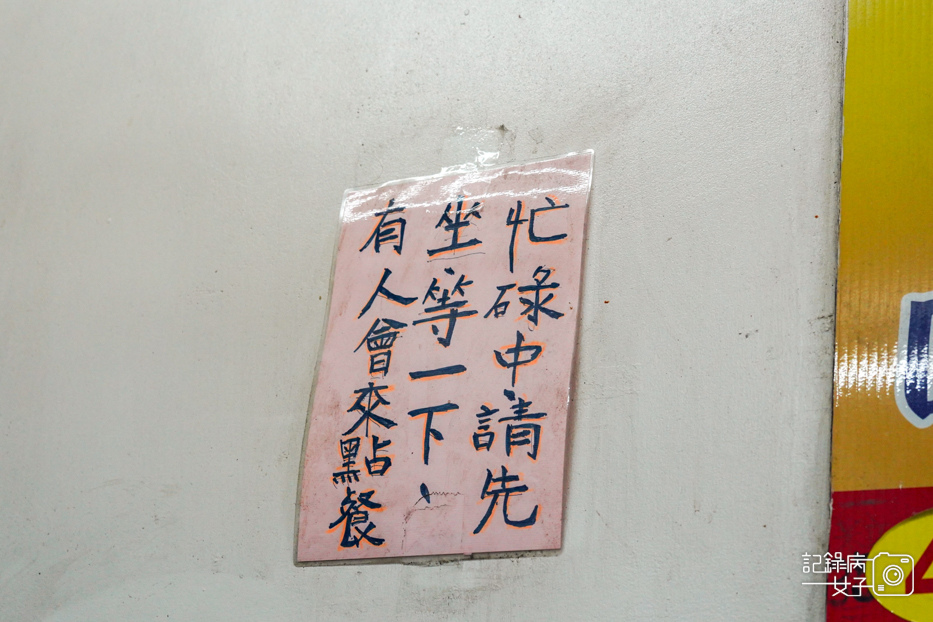 忙碌中請先
坐等一下、
有人會來點餐
記錄病
女子